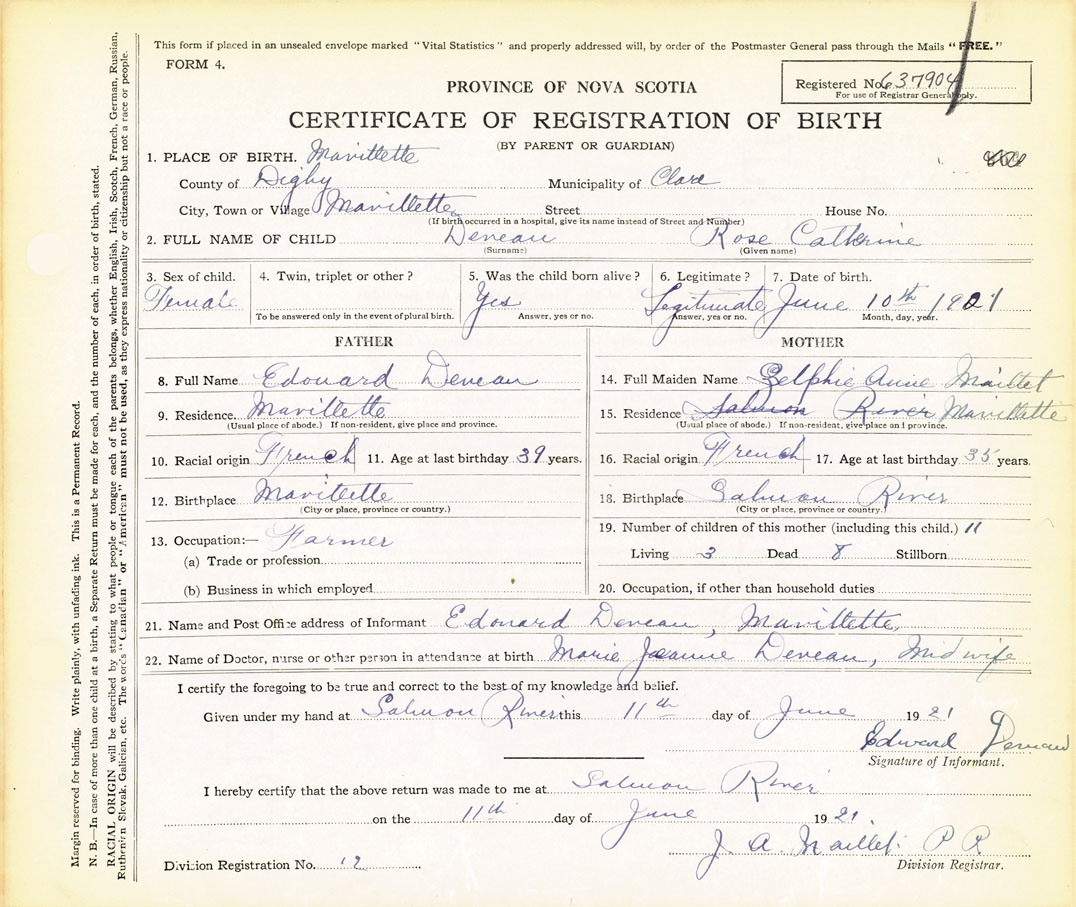 This form if placed in an unsealed envelope marked "Vital Statistics" and properly addressed will, by order of the Postmaster General pass through the Mails "FREE."
FORM 4.
Registered No. 637904
For use of Registrar General only.
PROVINCE OF NOVA SCOTIA
CERTIFICATE OF REGISTRATION OF BIRTH
(BY PARENT OR GUARDIAN)
1. PLACE OF BIRTH. Mavillette
County of Digby Municipality of Clare
City, Town or Village Mavillette Street House No.
(If birth occurred in a hospital, give its name instead of Street and Number)
2. FULL NAME OF CHILD Deveau Rose Catherine
(Surname) (Given name)
3. Sex of child. 4. Twin, triplet or other? 5. Was the child born alive? 6. Legitimate? 7. Date of birth.
Female Yes Legitimate June 10th 1921
To be answered only in the event of plural birth. Answer, yes or no. Answer, yes or no. Month, day, year.
FATHER
8. Full Name Edouard Deveau
9. Residence. Mavillette
(Usual place of abode.) If non-resident, give place and province.
10. Racial origin French 11. Age at last birthday 39 years.
12. Birthplace Mavillette
(City or place, province or country.)
13. Occupation:— Farmer
(a) Trade or profession
(b) Business in which employed
MOTHER
14. Full Maiden Name Zelphie Anne Maillet
15. Residence Salmon River Mavillette
(Usual place of abode.) If non-resident, give place and province.
16. Racial origin French 17. Age at last birthday 35 years.
18. Birthplace Salmon River
(City or place, province or country.)
19. Number of children of this mother (including this child.) 11
Living 3 Dead 8 Stillborn
20. Occupation, if other than household duties
21. Name and Post Office address of Informant Edouard Deveau, Mavillette
22. Name of Doctor, nurse or other person in attendance at birth Marie Jeanne Deveau, Midwife
I certify the foregoing to be true and correct to the best of my knowledge and belief.
Given under my hand at Salmon River this 11th day of June 1921
Edward Deveau
Signature of Informant.
I hereby certify that the above return was made to me at Salmon River
on the 11th day of June 1921.
J. A. Maillet. P R
Division Registrar.
Division Registration No. 12
Margin reserved for binding. Write plainly, with unfading ink. This is a Permanent Record.
N. B.—In case of more than one child at a birth, a Separate Return must be made for each, and the number of each, in order of birth, stated.
RACIAL ORIGIN will be described by stating to what people or tongue each of the parents belongs, whether English, Irish, Scotch, French, German, Russian,
Ruthenian, Slovak, Galician, etc. The words "Canadian" or "American" must not be used, as they express nationality or citizenship but not a race or people.